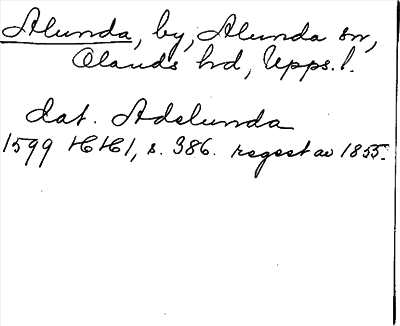 Alunda, by, Alunda sn,
Olands hd, Upps. l.
dat. Adelunda
1599 HH1, s. 386. regest av 1855.